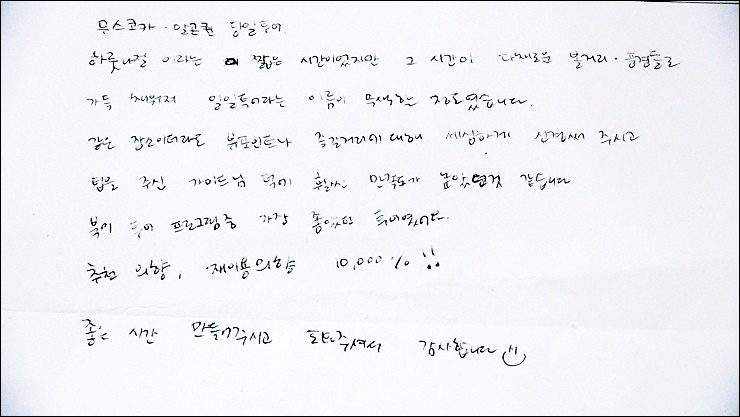 무스코카·알곤퀸 당일투어.
하룻나절 이라는 짧은 시간이었지만 그 시간이 다채로운 볼거리·풍경들로
가득 채워져 일일투어라는 이름이 무색할 정도였습니다.
같은 장소이더라도 뷰포인트나 즐길거리에 대해 세심하게 신경써 주시고
팁을 주신 가이드님 덕에 훨씬 만족도가 높았던것 같습니다
북미 투어 프로그램중 가장 좋았던 투어였어요.
추천 의향, 재이용의향 10,000% !!
좋은 시간 만들어주시고 도와주셔서 감사합니다